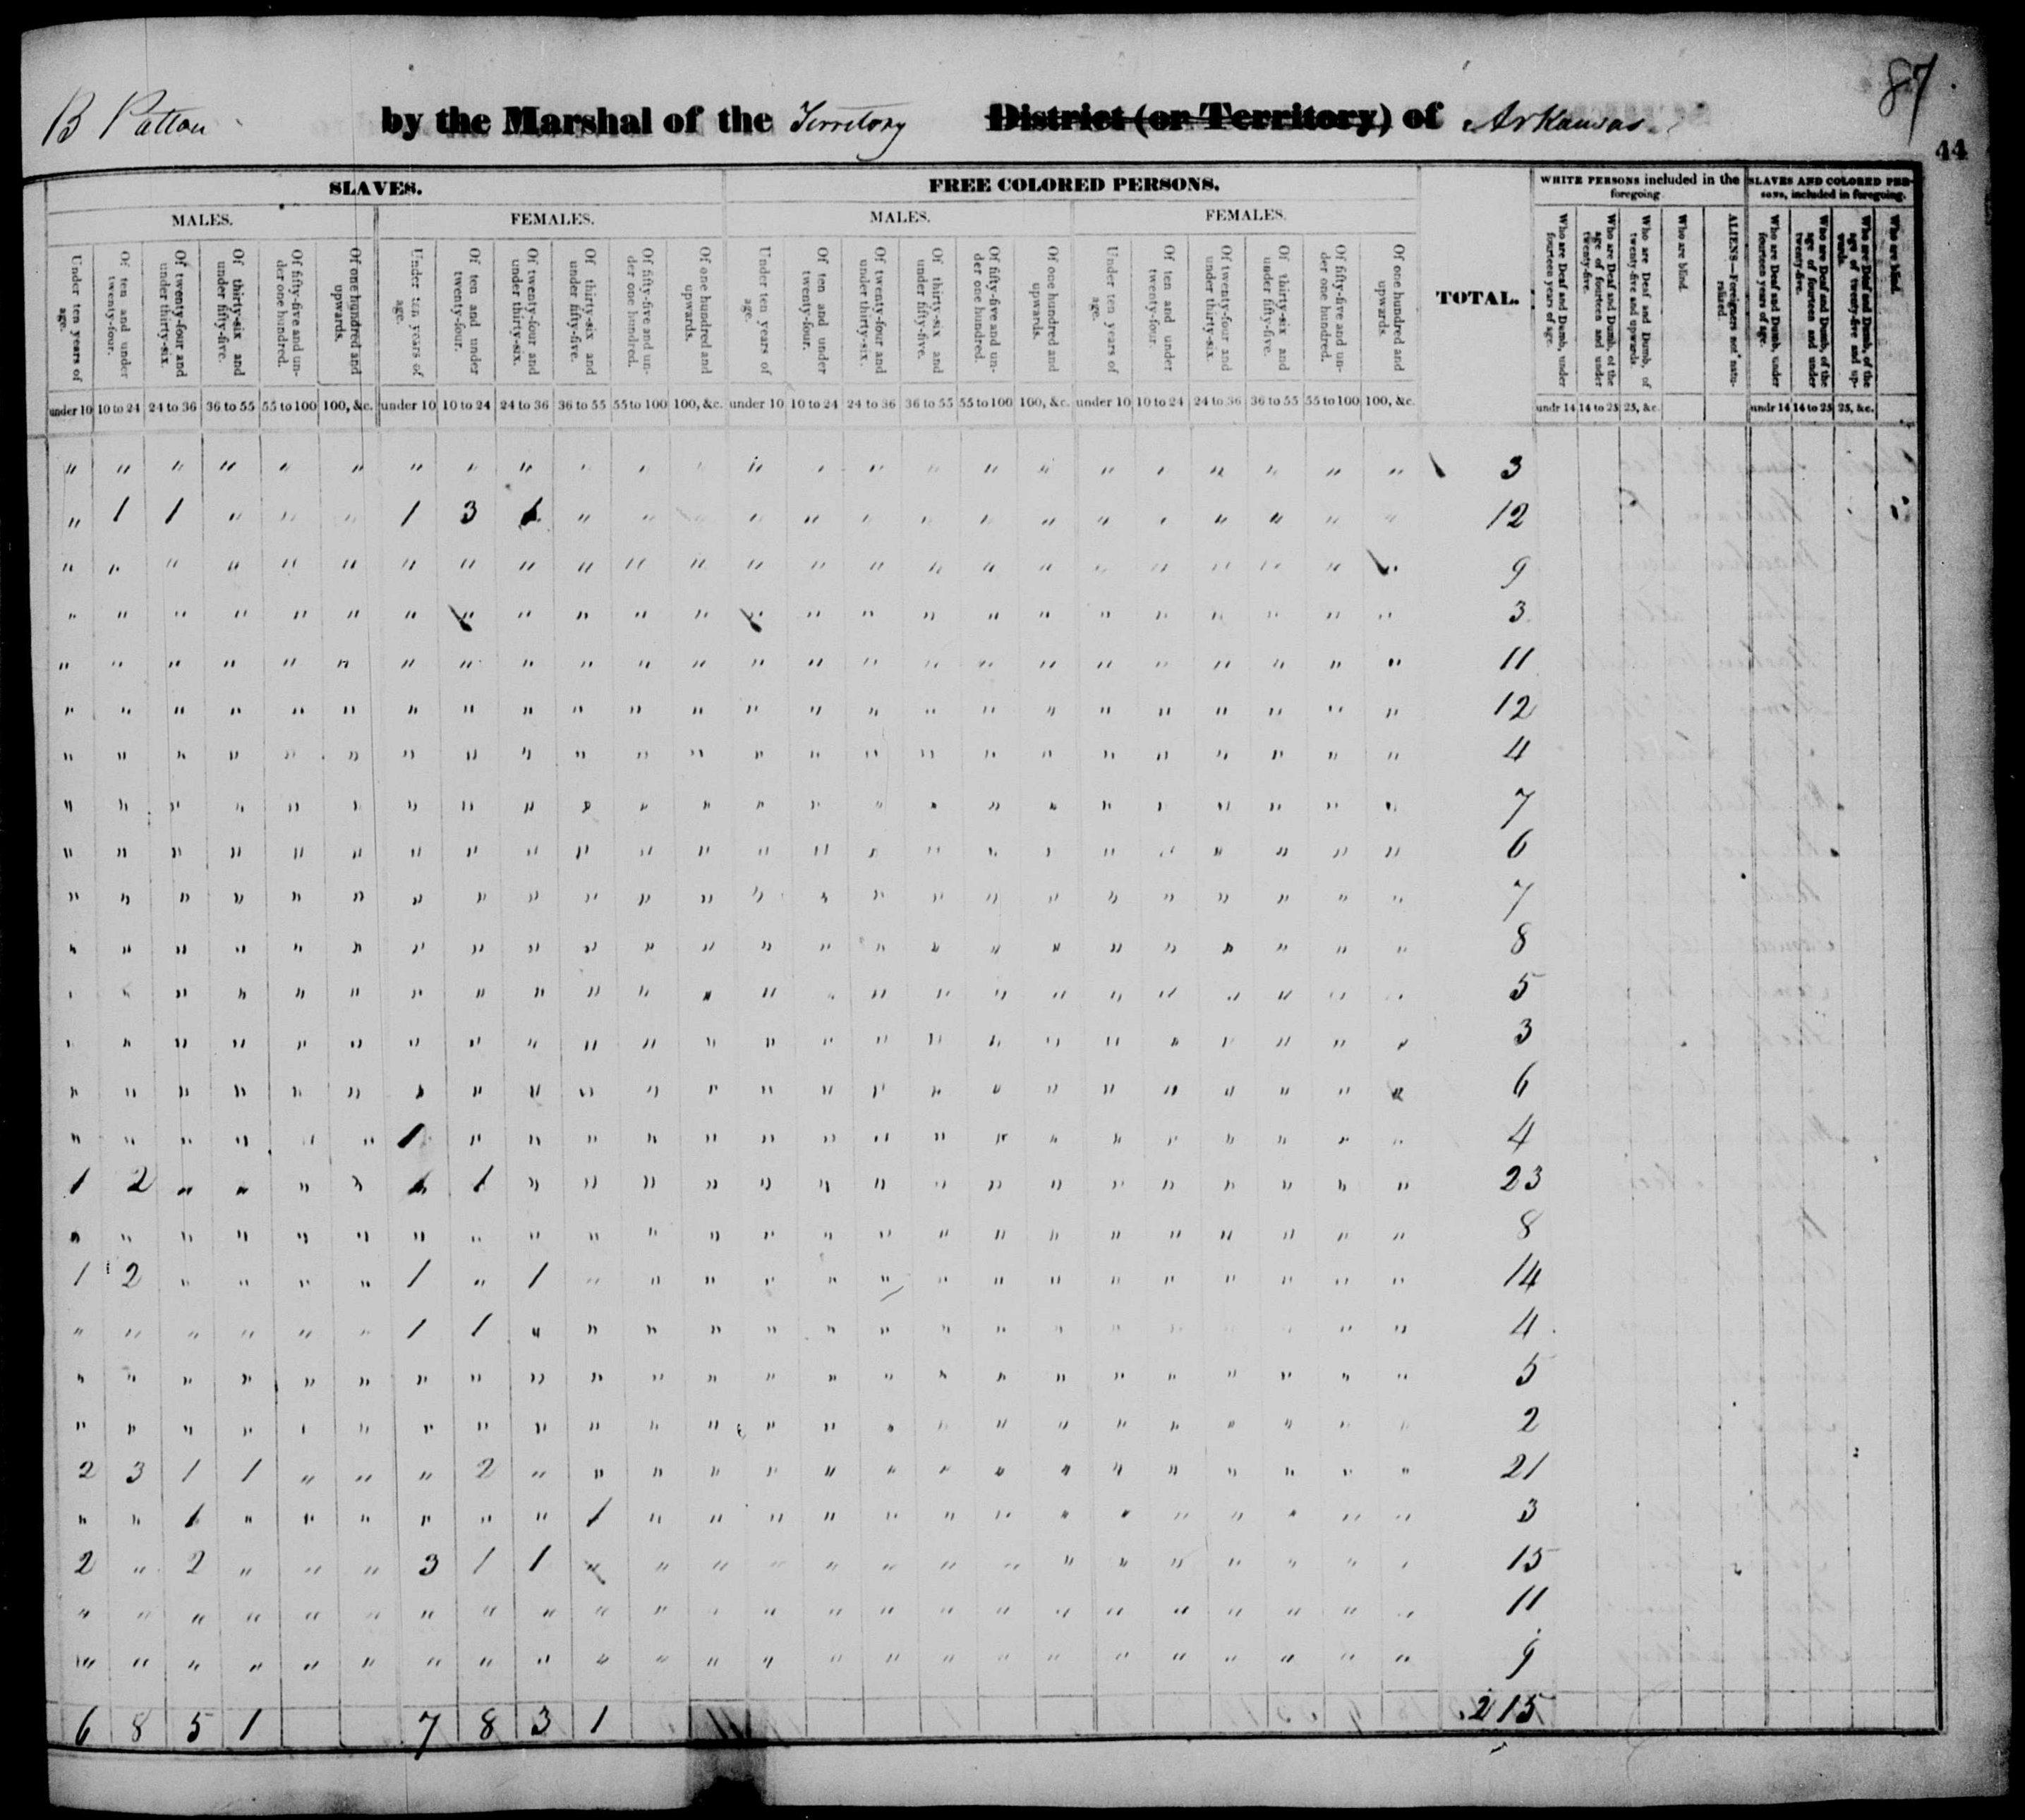 87
B Patton by the Marshal of the Territory District (or Territory) of Arkansas
44
SLAVES. FREE COLORED PERSONS. TOTAL. WHITE PERSONS included in the foregoing SLAVES AND COLORED PERSONS, included in foregoing.
MALES. FEMALES. MALES. FEMALES.
Under ten years of age.
Of ten and under twenty-four.
Of twenty-four and under thirty-six.
Of thirty-six and under fifty-five.
Of fifty-five and under one hundred.
Of one hundred and upwards.
Under ten years of age.
Of ten and under twenty-four.
Of twenty-four and under thirty-six.
Of thirty-six and under fifty-five.
Of fifty-five and under one hundred.
Of one hundred and upwards.
Under ten years of age.
Of ten and under twenty-four.
Of twenty-four and under thirty-six.
Of thirty-six and under fifty-five.
Of fifty-five and under one hundred.
Of one hundred and upwards.
Under ten years of age.
Of ten and under twenty-four.
Of twenty-four and under thirty-six.
Of thirty-six and under fifty-five.
Of fifty-five and under one hundred.
Of one hundred and upwards.
Who are Deaf and Dumb, under fourteen years of age.
Who are Deaf and Dumb, of the age of fourteen and under twenty-five.
Who are Deaf and Dumb, of twenty-five and upwards.
Who are blind.
ALIENS—Foreigners not naturalised
Who are Deaf and Dumb, under fourteen years of age.
Who are Deaf and Dumb, of the age of fourteen and under twenty-five.
Who are Deaf and Dumb, of the age of twenty-five and upwards.
Who are blind.
under 10 10 to 24 24 to 36 36 to 55 55 to 100 100, &c. under 10 10 to 24 24 to 36 36 to 55 55 to 100 100, &c. under 10 10 to 24 24 to 36 36 to 55 55 to 100 100, &c. under 10 10 to 24 24 to 36 36 to 55 55 to 100 100, &c. undr 14 14 to 25 25, &c. undr 14 14 to 25 25, &c.
" " " " " " " " " " " " " " " " " " " " " " " " 3
" 1 1 " " " 1 3 1 " " " " " " " " " " " " " " " 12
" " " " " " " " " " " " " " " " " " " " " " " " 9
" " " " " " " " " " " " " " " " " " " " " " " " 3
" " " " " " " " " " " " " " " " " " " " " " " " 11
" " " " " " " " " " " " " " " " " " " " " " " " 12
" " " " " " " " " " " " " " " " " " " " " " " " 4
" " " " " " " " " " " " " " " " " " " " " " " " 7
" " " " " " " " " " " " " " " " " " " " " " " " 6
" " " " " " " " " " " " " " " " " " " " " " " " 7
" " " " " " " " " " " " " " " " " " " " " " " " 8
" " " " " " " " " " " " " " " " " " " " " " " " 5
" " " " " " " " " " " " " " " " " " " " " " " " 3
" " " " " " " " " " " " " " " " " " " " " " " " 6
" " " " " " 1 " " " " " " " " " " " " " " " " " 4
1 2 " " " " 1 " " " " " " " " " " " " " " " " 23
" " " " " " " " " " " " " " " " " " " " " " " " 8
1 2 " " " " 1 " 1 " " " " " " " " " " " " " " " 14
" " " " " " 1 1 " " " " " " " " " " " " " " " " 4
" " " " " " " " " " " " " " " " " " " " " " " " 5
" " " " " " " " " " " " " " " " " " " " " " " " 2
2 3 1 1 " " " 2 " " " " " " " " " " " " " " " " 21
" " 1 " " " " " " 1 " " " " " " " " " " " " " " 3
2 " 2 " " " 3 1 1 " " " " " " " " " " " " " " " 15
" " " " " " " " " " " " " " " " " " " " " " " " 11
" " " " " " " " " " " " " " " " " " " " " " " " 9
6 8 5 1 7 8 3 1 215